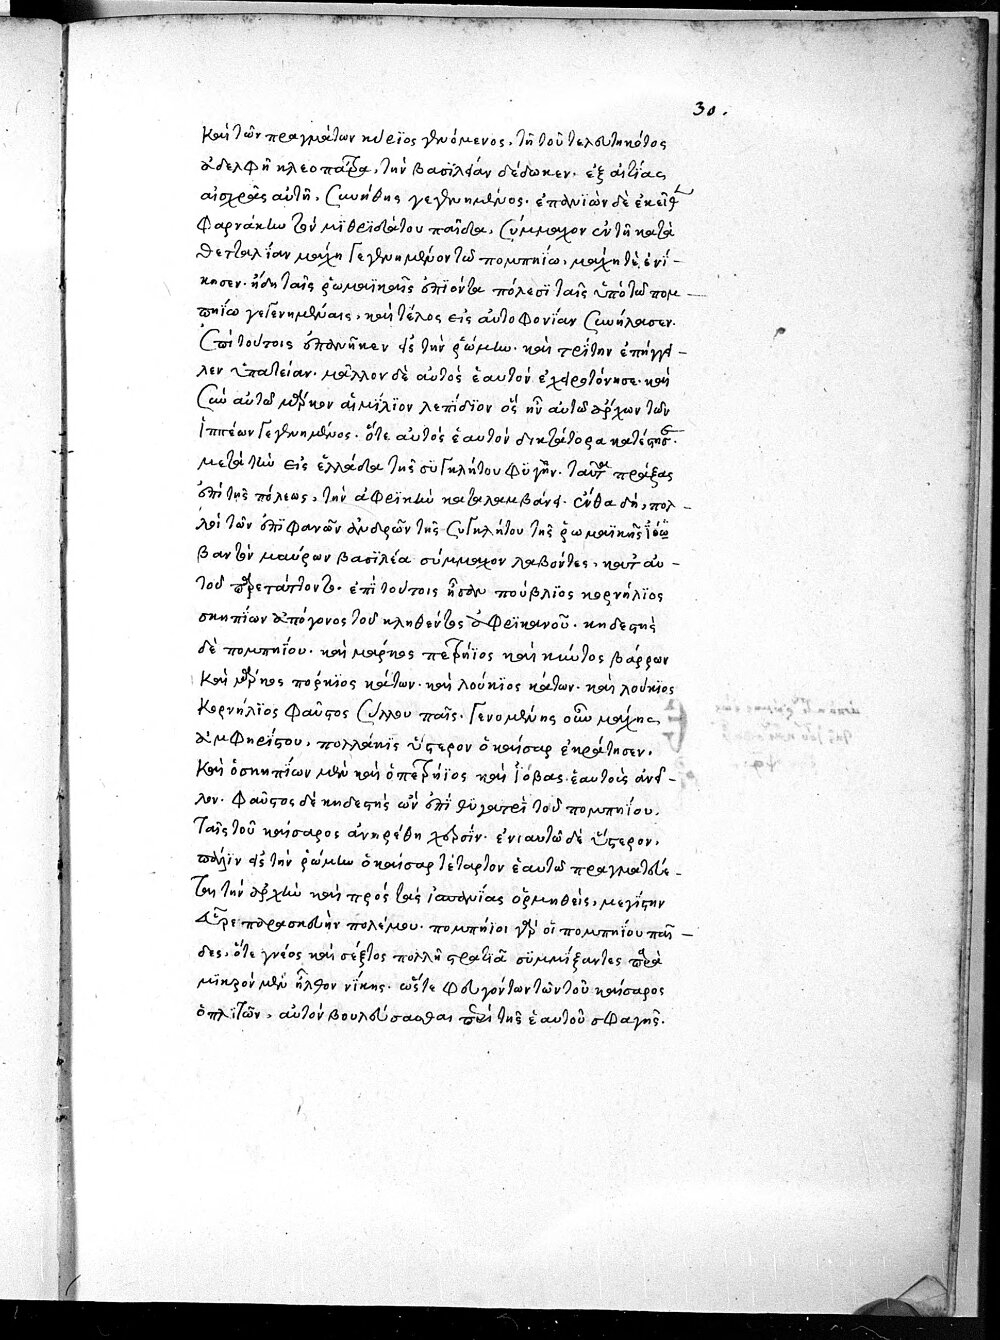 30.
καὶ τῶν πραγμάτων κύριος γενόμενος, τῇ τοῦ τελευτηκότος
ἀδελφῇ κλεοπάτρα, τὴν βασιλείαν δέδωκεν. ἐξ αἰτίας
αἰσχρᾶς αὐτῇ, συνήθης γεγενημένος. ἐπανιὼν δὲ ἐκεῖθεν
φαρνάκην τὸν μιθριδάτου παῖδα, σύμμαχον ἐν τῇ κατὰ
θετταλίαν μάχη γεγενημένον τῶ πομπηΐω, μάχη τὲ ἐνί-
κησεν. ἤδη ταῖς ῥωμαϊκαῖς ἐπιόντα πόλεσϊ ταῖς ὑπὸ τῶ πομ-
πηΐω γεγενημέναις, καὶ τέλος εἰς αὐτοφονίαν συνήλασεν.
ἐπὶ τούτοις ἐπανῆκεν εἰς τὴν ῥώμην. καὶ τρίτην ἐπήγγει-
λεν ὑπατείαν. μᾶλλον δὲ αὐτὸς ἑαυτὸν ἐχειροτόνησε. καὶ
σὺν αὐτῶ μάρκον αἰμίλϊον λεπίδϊον ὃς ἦν αὐτῶ ἄρχων τῶν
ἱππέων γεγενημένος. ὅτε αὐτὸς ἑαυτὸν δικτάτορα κατέστησε.
μετὰ τὴν εἰς ἑλλάδα τῆς συγκλήτου φυγὴν. ταῦτα πράξας
ἐπὶ τῆς πόλεως, τὴν ἀφρικὴν καταλαμβάνει. ἔνθα δὴ, πολ-
λοὶ τῶν ἐπιφανῶν ἀνδρῶν τῆς συγκλήτου τῆς ῥωμαϊκῆς ἰό-
βαν τὸν μαύρων βασϊλέα σύμμαχον λαβόντες, κατ αὐ-
τοῦ παρετάττοντο. ἐπὶ τούτοις ἦσαν πούβλϊος κορνήλϊος
σκηπΐων ἀπόγονος τοῦ κληθέντος ἀφρϊκανοῦ. κηδεστὴς
δὲ πομπηΐου. καὶ μάρκος πετρήϊος καὶ κυίντος βάρρων
καὶ μάρκος πόρκϊος κάτων. καὶ λούκϊος κάτων. καὶ λούκϊος
κορνήλϊος φαῦστος σύλλου παῖς. γενομένης οὖν μάχης,
ἀμφηρίστου, πολλάκις ὕστερον ὁ καίσαρ ἐκράτησεν.
καὶ ὁ σκηπΐων μὲν καὶ ὁ πετρήϊος καὶ ἰόβας ἑαυτοὺς ἀνεῖ-
λον. φαῦστος δὲ κηδεστὴς ὢν ἐπὶ θυγατρὶ τοῦ πομπηΐου,
ταῖς τοῦ καίσαρος ἀνῃρέθη χερσΐν. ἐνιαυτῶ δὲ ὕστερον,
πάλϊν εἰς τὴν ῥώμην ὁ καίσαρ τέταρτον ἑαυτῶ πραγματεύε-
ται τὴν ἀρχὴν καὶ πρὸς τὰς ἱσπανΐας ὁρμηθεὶς, μεγίστην
εὗρε παρασκευὴν πολέμου. πομπήϊοι γὰρ οἱ πομπηΐου παῖ-
δες, ὅτε γνέος καὶ σέξτος πολλῇ στρατιᾶ συμμίξαντες παρὰ
μϊκρὸν μὲν ἦλθον νίκης. ὥστε φευγόντων τῶν τοῦ καίσαρος
ὁπλϊτῶν, αὐτὸν βουλεύσασθαι περὶ τῆς ἑαυτοῦ σφαγῆς.